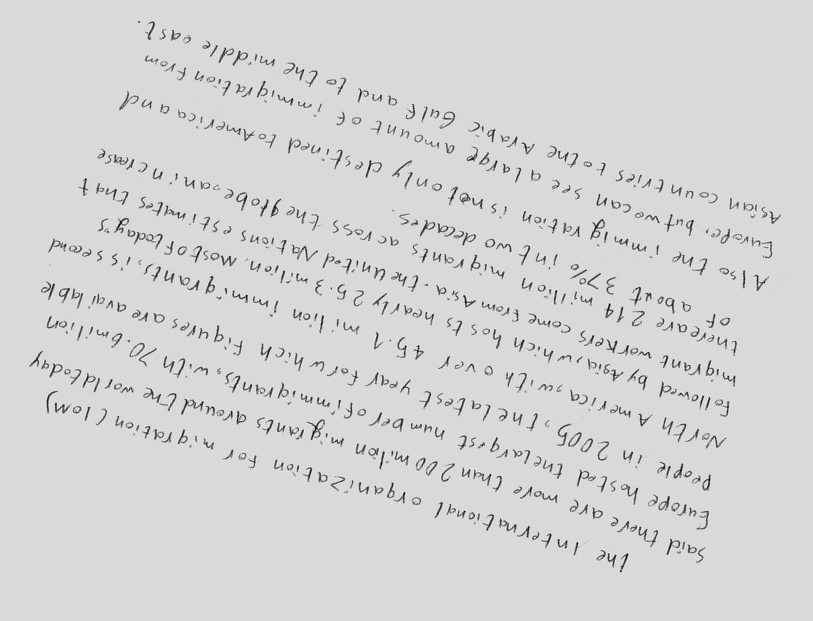 the International organization for migration (IOM)
said there are more than 200 milion migrants around the world today
Europe hosted the largest number of immigrants, with 70.6 milion
people in 2005, the latest year for which figures are available
North America, with over 45.1 milion immigrants, is second
followed by Asia, which hosts nearly 25.3 milion. Most of today's
migrant workers come from Asia. the United Nations estimates that
there are 214 milion migrants across the globe, an increase
of about 37% in two decades.
Also the immigration is not only destined to America and
Europe, but we can see a large amount of immigration from
Asian countries to the Arabic Gulf and to the middle east.